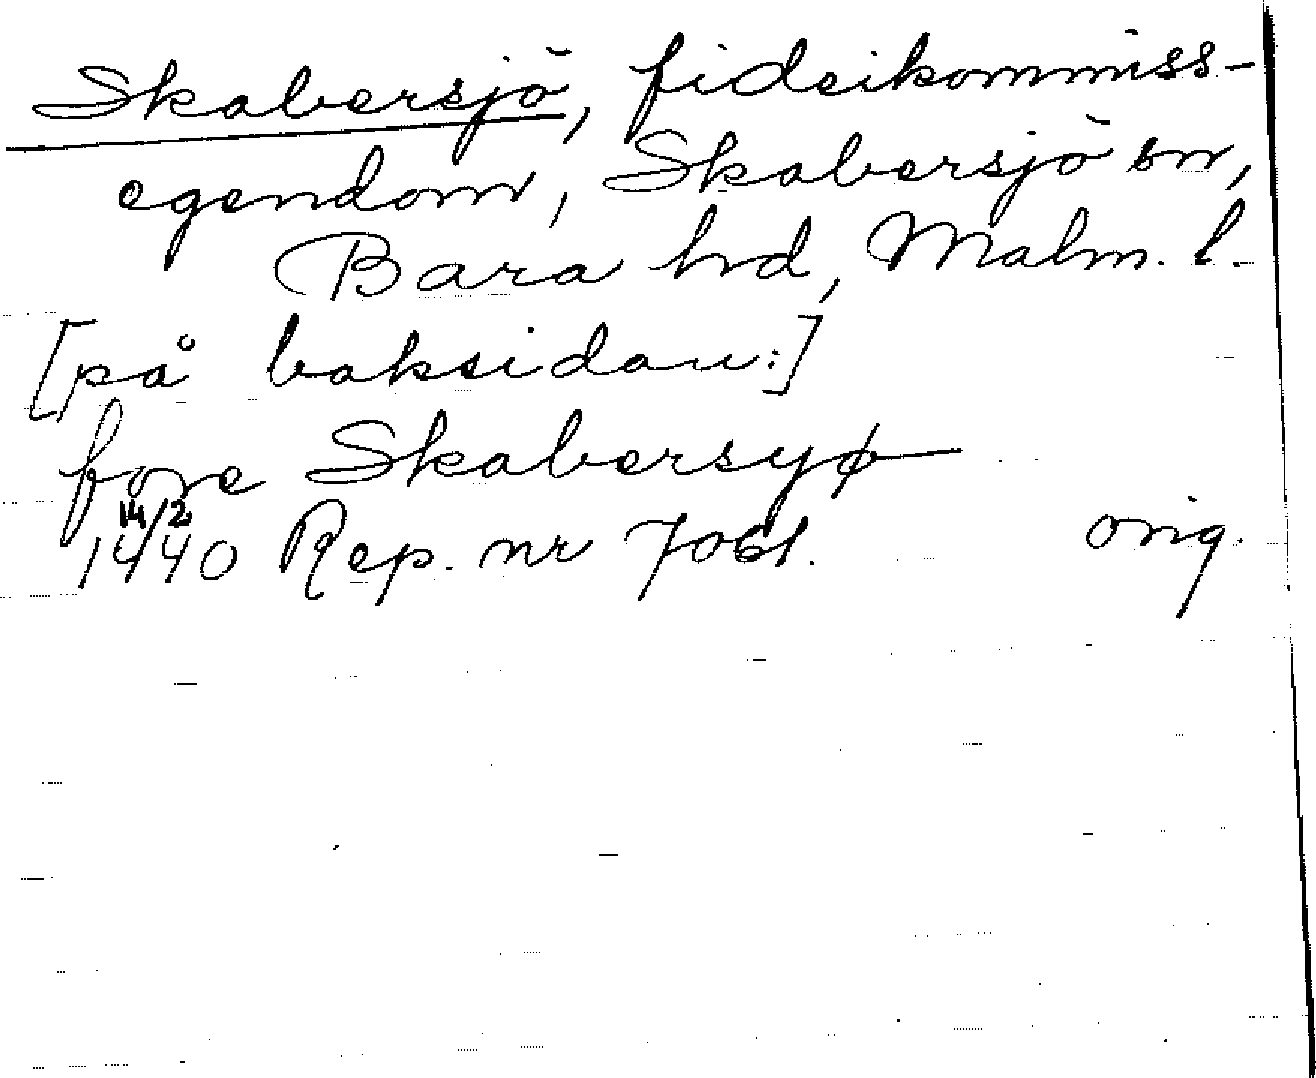 Skabersjö, fideikommiss-
egendom, Skabersjö sn,
Bara hd, Malm. l.
[på baksidan:]
fore Skabersyø
14/2
1440 Rep. nr 7061. orig.